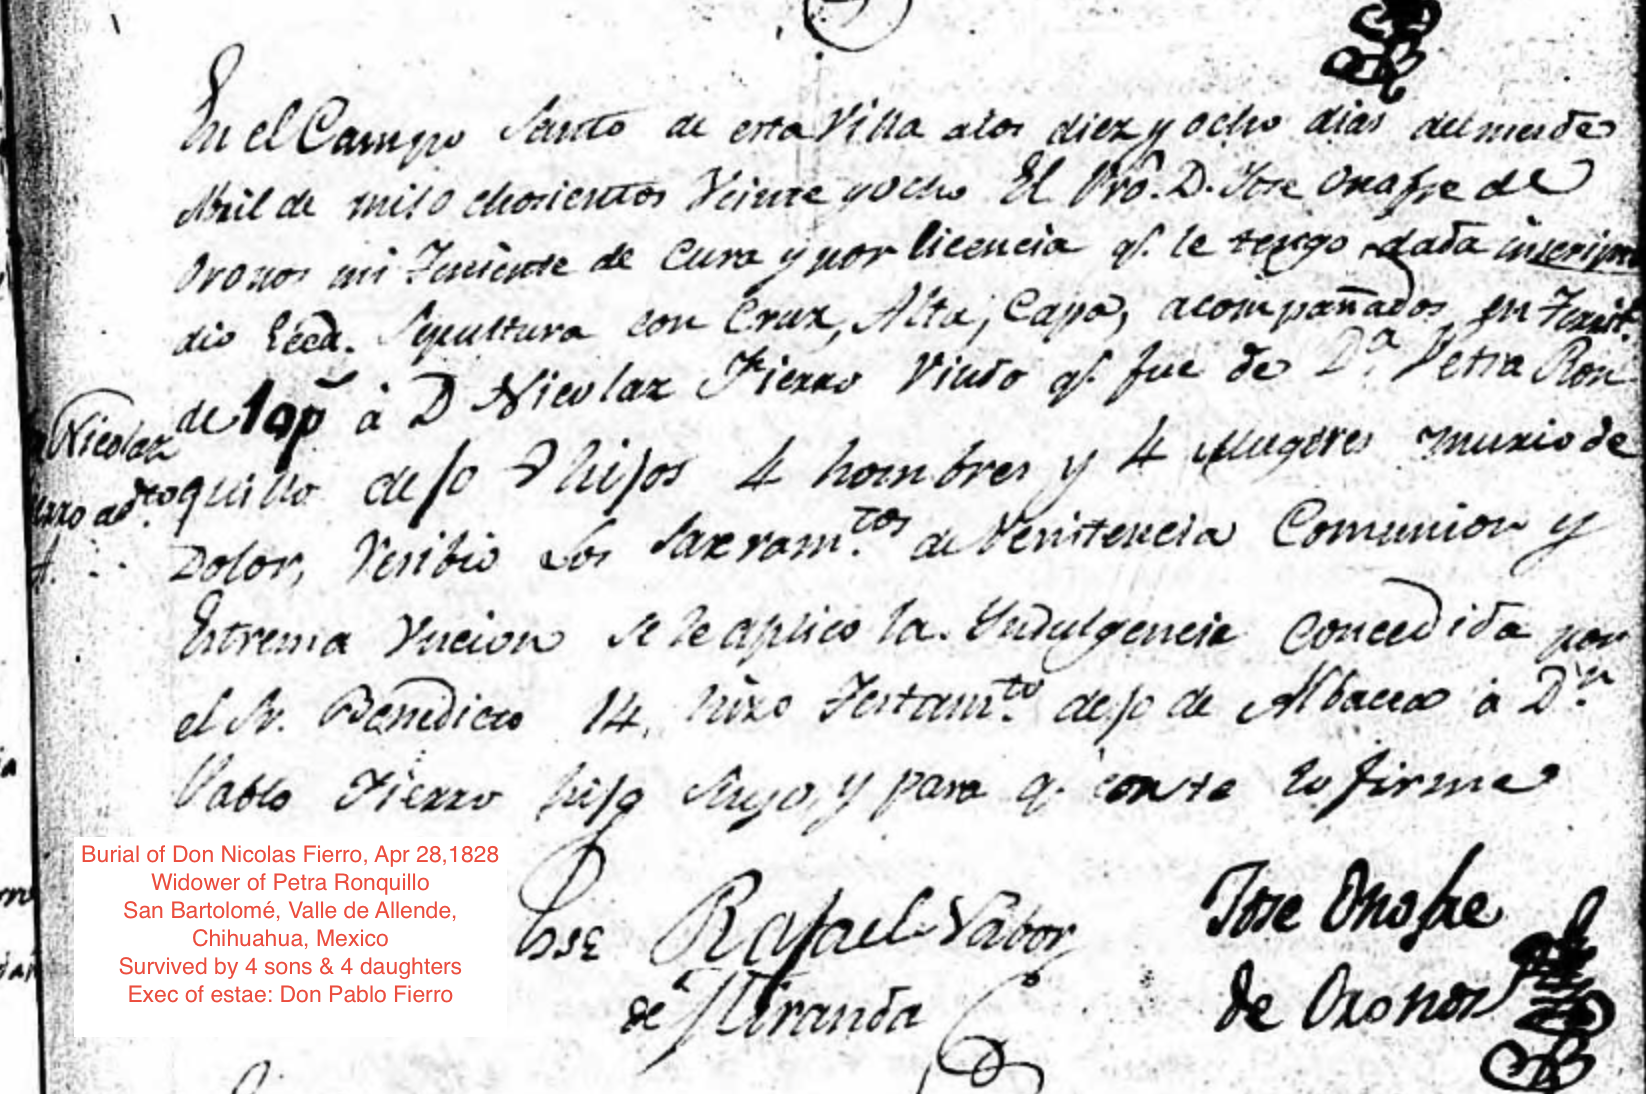 En el Campo Santo de esta Villa a los diez y ocho dias del mes de
Abril de mil o chosientos Veinte y ocho El Pro. D. Jose Onofre de
Oronos mi Teniente de Cura y por licencia q. le tengo dada inscriptis
dio Eccã. Sepultura con Cruz, Alta, Capa, acompañados en
de 1a p à D Nicolaz Fierro Viudo q. fue de Da. Petra Ron
Nicolaz
quillo dejo 8 hijos 4 hombres y 4 Mugeres murio de
rro adto.
Dolor, Resibio Los Sacramtos. de Penitencia Comunion y
Estrema Uncion se le aplico la Yndulgencia Concedida por
el Sr. Benedicto 14. hizo Testamto. dejo de Albacea a Dn.
Pablo Fierro hijo Suyo, y para q. conste lo firme
Jose Rafael Pabor
de Miranda
Jose Onofre
de Oronos
Burial of Don Nicolas Fierro, Apr 28,1828
Widower of Petra Ronquillo
San Bartolomé, Valle de Allende,
Chihuahua, Mexico
Survived by 4 sons & 4 daughters
Exec of estae: Don Pablo Fierro